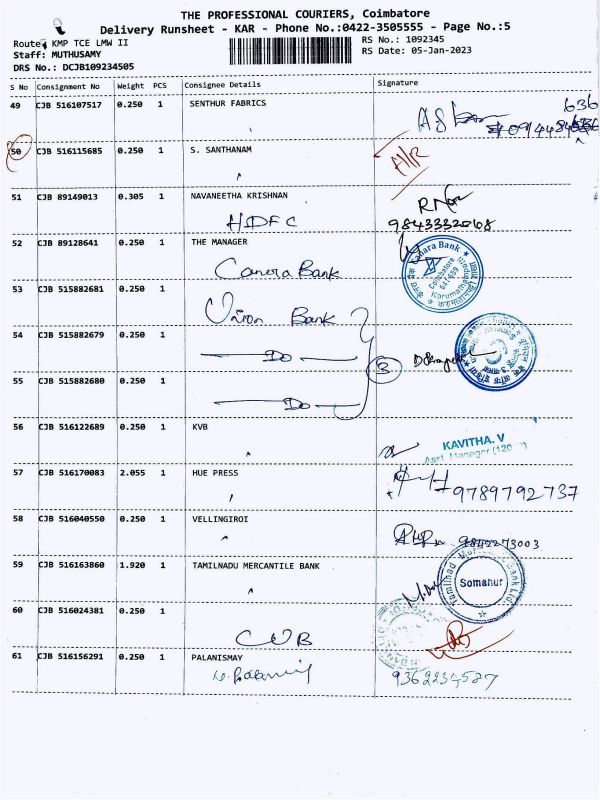 THE PROFESSIONAL COURIERS, Coimbatore
Delivery Runsheet - KAR - Phone No.:0422-3505555 - Page No.:5
Route: KMP TCE LMW II
RS No.: 1092345
Staff: MUTHUSAMY
RS Date: 05-Jan-2023
DRS No.: DCJB109234505
S No Consignment No Weight PCS Consignee Details Signature
49 CJB 516107517 0.250 1 SENTHUR FABRICS
636
50 CJB 516115685 0.250 1 S. SANTHANAM
A/R
51 CJB 89149013 0.305 1 NAVANEETHA KRISHNAN
HDFC 9843332068
52 CJB 89128641 0.250 1 THE MANAGER
Canera Bank
Canara Bank
Coimbatore
641659
Karumathampatti
53 CJB 515882681 0.250 1
Union Bank
54 CJB 515882679 0.250 1
Do
3
55 CJB 515882680 0.250 1
Do
56 CJB 516122689 0.250 1 KVB
KAVITHA. V
Asst. Manager (120
57 CJB 516170083 2.055 1 HUE PRESS
9789792737
58 CJB 516040550 0.250 1 VELLINGIROI
9842273003
59 CJB 516163860 1.920 1 TAMILNADU MERCANTILE BANK
Tamilnad Mercantile Bank Ltd
Somanur
60 CJB 516024381 0.250 1
CUB
61 CJB 516156291 0.250 1 PALANISMAY
9362234587